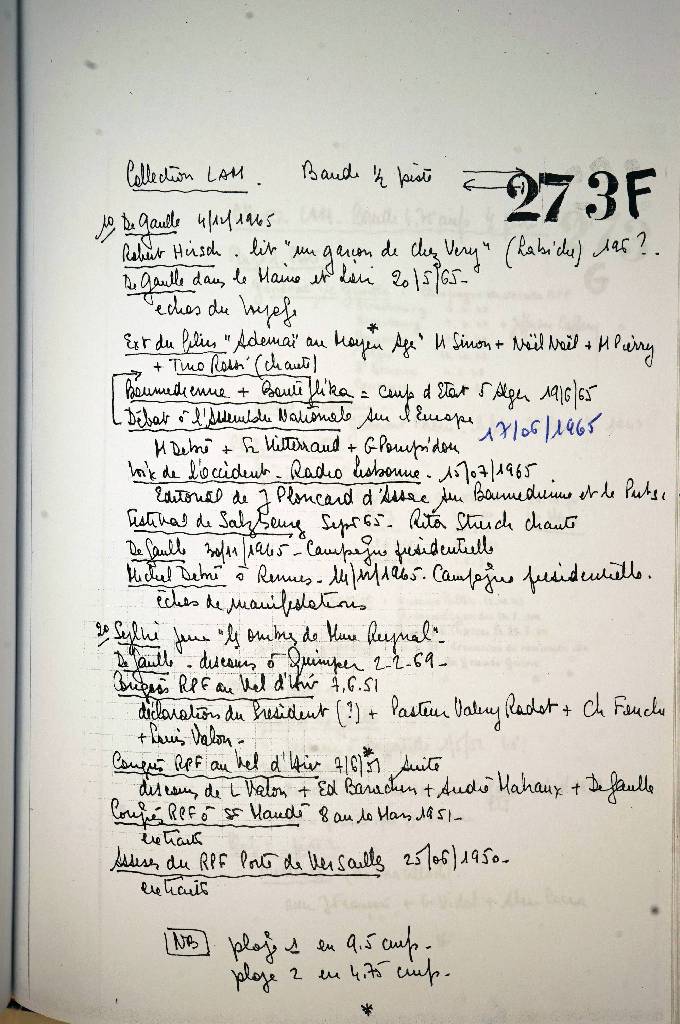 Collection LAM. Bande ½ piste 273F
1°/ De Gaulle 4/12/1965
Robert Hirsch. lit "un garçon de chez Very" (Labiche) 196?.
De Gaulle dans le Maine et Loir 20/5/65-
echos du voyage
Ext du film "Ademaï au Moyen Age" M Simon + Noël Noël + M Pierry
+ Tino Rossi (chante)
Boumedienne + Bouteflika = coup d'Etat à Alger 19/6/65
Débat à l'Assemblée Nationale sur l'Europe 17/06/1965
M Debré + Fr Mitterrand + G Pompidou
Voix de l'occident - Radio Lisbonne. 15/07/1965
Editorial de J Ploncard d'Assac sur Boumedienne et le Puts
Festival de Salzbourg Sept 65 - Rita Streich chante
De Gaulle 30/11/1965 - Campagne présidentielle
Michel Debré à Rennes - 14/12/1965. Campagne présidentielle.
échos de manifestations
2°/ joue "les ombres de Mme Reynal"-
De Gaulle - discours à Quimper 2-2-69-
Congrès RPF au Vel d'Hiv 7.6.51
déclarations du Président (?) + Pasteur Valery Radot + Ch Fouche
+ Louis Valon -
Congrès RPF au Vel d'Hiv 7/6/51 suite
discours de L Valon + Ed Barachin + André Malraux + De Gaulle
Congrès RPF à St Mandé 8 au 10 Mars 1951-
extraits
Assises du RPF Porte de Versailles 25/06/1950-
extraits
NB plage 1 en 9.5 cmps-
plage 2 en 4.75 cmps-
*